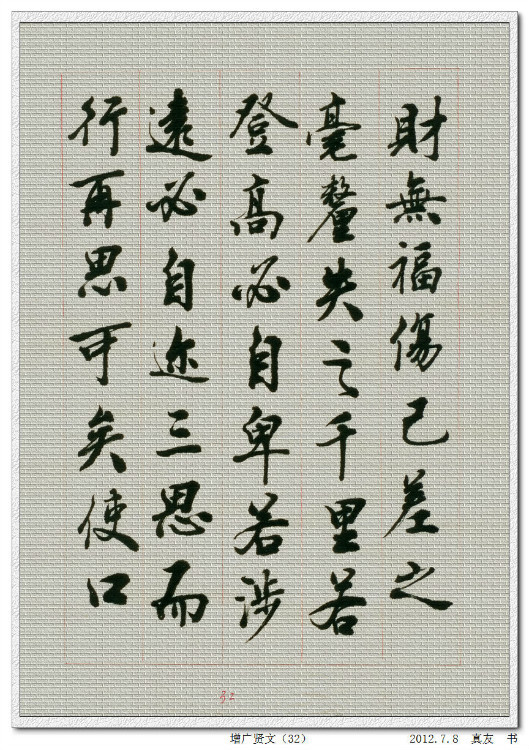 財無福傷己差之
毫釐失之千里若
登高必自卑若涉
遠必自迩三思而
行再思可矣使口
32
增广贤文（32）
2012.7.8 真友 书